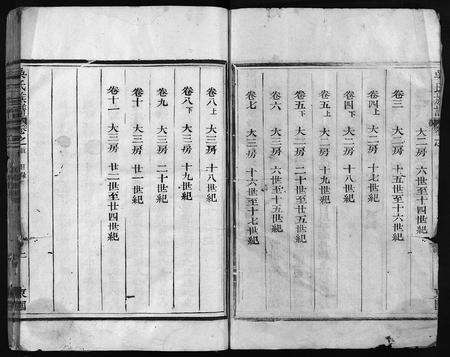 大二房 六世至十四世紀
卷三 大二房 十五世至十六世紀
卷四上 大二房 十七世紀
卷四下 大二房 十八世紀
卷五上 大二房 十九世紀
卷五下 大二房 二十世至廿五世紀
卷六 大三房 六世至十五世紀
卷七 大三房 十六世至十七世紀
卷八上 大三房 十八世紀
卷八下 大三房 十九世紀
卷九 大三房 二十世紀
卷十 大三房 廿一世紀
卷十一 大三房 廿二世至廿四世紀